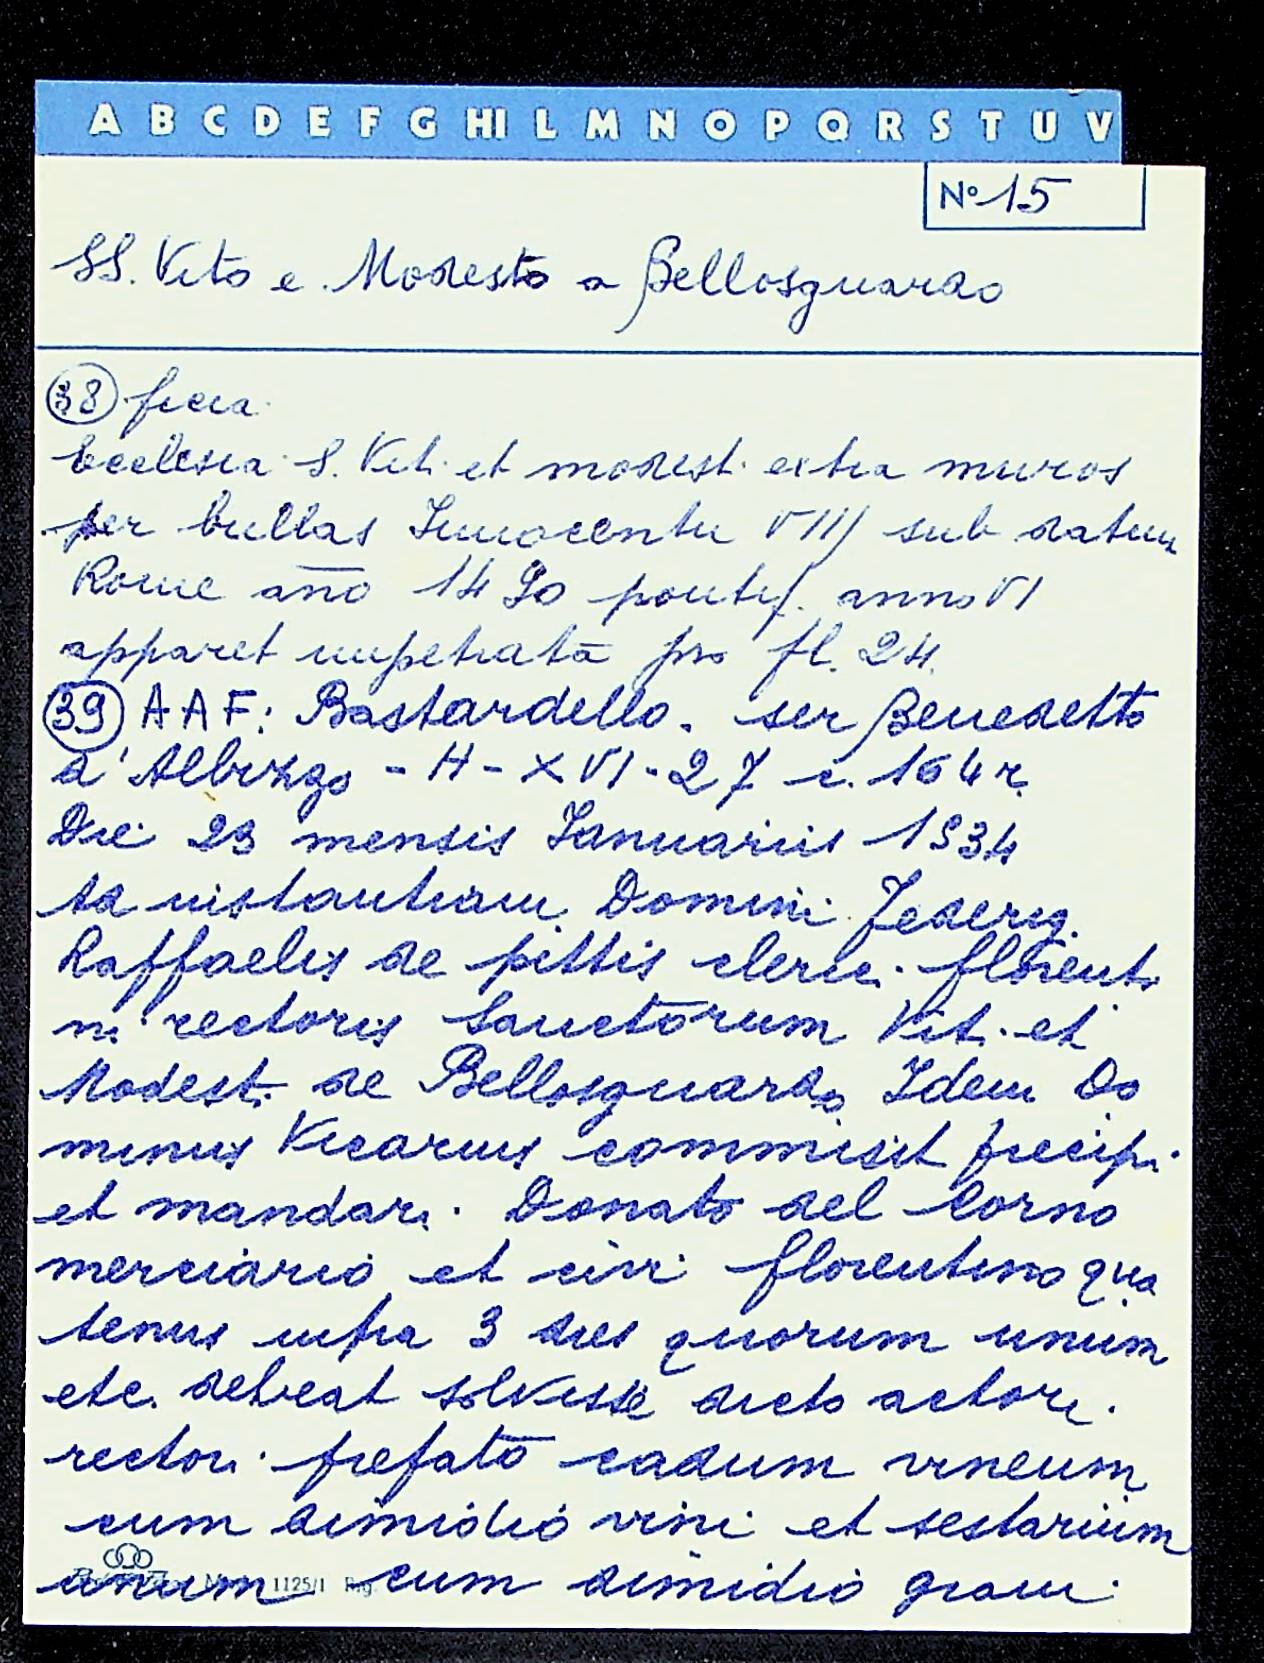 A B C D E F G HI L M N O P Q R S T U V
N° 15
SS. Vito e Modesto a Bellosguardo
38
Ecclesia S. Viti et modesti extra muros
per bullas Innocentii VIII sub datum
Rome año 1490 pontif. anno VI
apparet impetrata pro fl. 24.
39 A A F: Bastardello. ser Benedetto
d'Albizzo - H - XVI - 27 c. 164 r.
Die 23 mensis Januarii 1534
Ad instantiam Domini Federig.
Raffaelis de pittis cleric. florenti
ni rectoris Sanctorum Viti et
Modesti de Bellosguardo Idem Do
minus Vicarius commisit precipi
et mandari Donato del Corno
merciario et civi florentino qua
tenus infra 3 dies quorum unum
etc. debeat solvisse dicto actori
rectori prefato cadum vineum
cum dimidio vini et sestarium
unum cum dimidio grani
1125/1